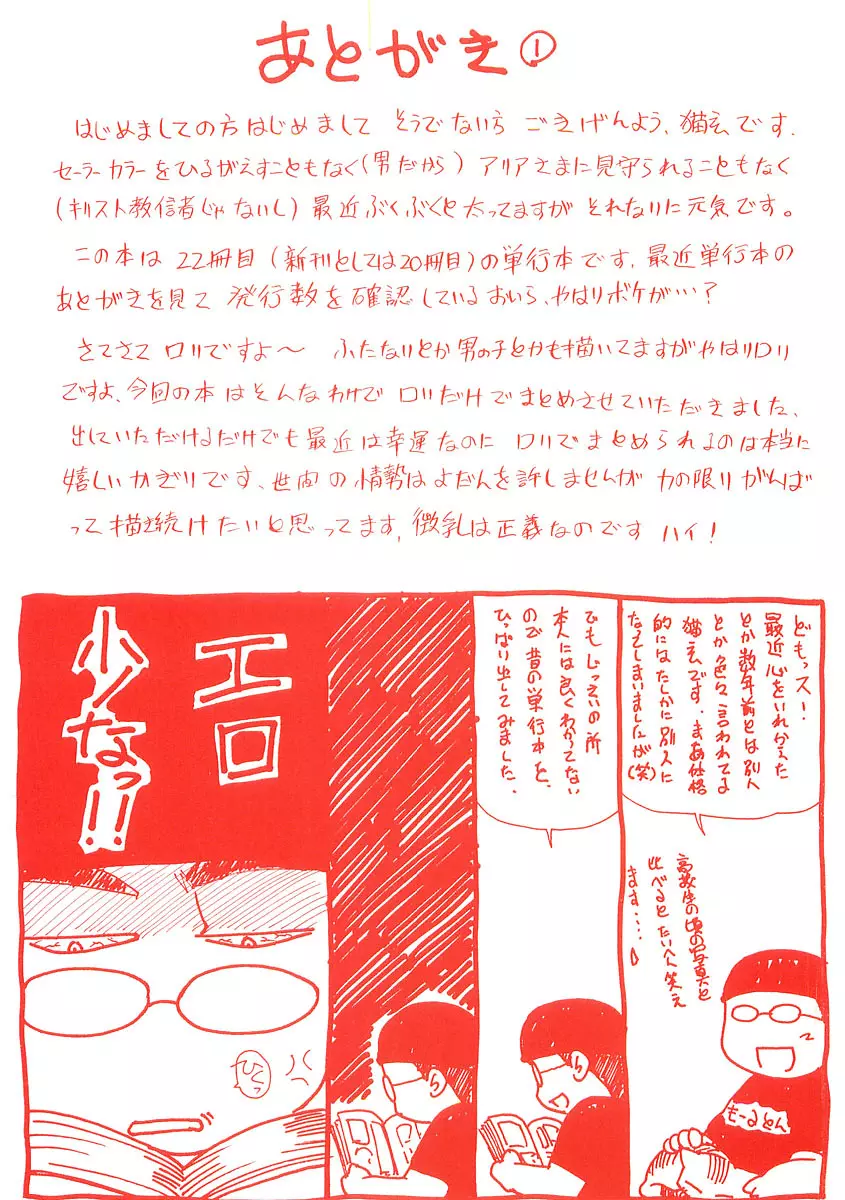 あとがき①
はじめましての方はじめまして そうでない方 ごきげんよう、猫玄です.
セーラーカラーをひるがえすこともなく(男だから) アリアさまに見守られることもなく
(キリスト教信者じゃないし) 最近ぶくぶくと太ってますが それなりに元気です。
この本は 22冊目 (新刊としては20冊目)の単行本です、最近単行本の
あとがきを見て 発行数を確認しているおいら、やはりボケが…?
さてさて ロリですよ〜 ふたなりとか男の子とかも描いてますがやはりロリ
ですよ、今回の本はそんなわけで ロリだけでまとめさせていただきました、
出していただけるだけでも最近は幸運なのに ロリでまとめられるのは本当に
嬉しいかぎりです、世間の情勢はよだんを許しませんが 力の限りがんば
って描き続けたいと思ってます, 微乳は正義なのです ハイ!
どもっス!
最近心をいれかえた
とか数年前とは別人
とか色々言われてる
猫玄です. まあ仕格
的にはたしかに別人に
なってしまいましたが(笑)
高校生の頃の写真と
比べるとたいへん笑え
ます....
もーるとん
でもじっさいの所
本人には良くわかってない
ので昔の単行本を、
ひっぱり出してみました.
エロ
少なっ!!
ひくっ